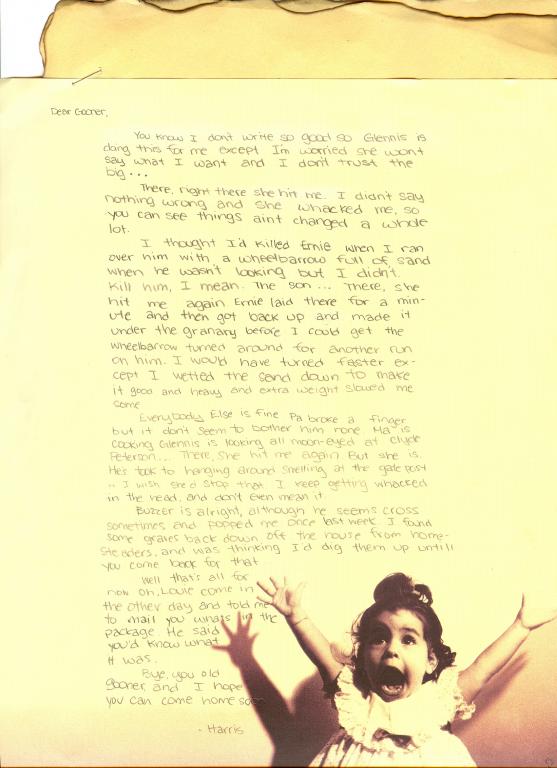 Dear Gooner,
You know I don't write so good so Glennis is
doing this for me except I'm worried she won't
say what I want and I don't trust the
big...
There, right there she hit me. I didn't say
nothing wrong and she whacked me, so
you can see things aint changed a whole
lot.
I thought I'd killed Ernie when I ran
over him with a wheelbarrow full of sand
when he wasn't looking but I didn't.
Kill him, I mean. The son... There, she
hit me again Ernie laid there for a min-
ute and then got back up and made it
under the granary before I could get the
wheelbarrow turned around for another run
on him. I would have turned faster ex-
cept I wetted the sand down to make
it good and heavy and extra weight slowed me
some
Everybody Else is fine Pa broke a finger
but it don't seem to bother him none. Ma is
cooking Glennis is looking all moon-eyed at Clyde
Peterson... There, She hit me again. But she is.
He's took to hanging around smelling at the gate post
.. I wish she'd stop that. I keep getting whacked
in the head, and don't even mean it
Buzzer is alright, although he seems cross
sometimes and popped me once last week. I found
some graves back down off the house from home-
steaders, and was thinking I'd dig them up untill
you come back for that
Well that's all for
now oh, Louie come in
the other day and told me
to mail you whats in the
package. He said
you'd know what
it was.
Bye, you old
gooner, and I hope
you can come home soon
- Harris